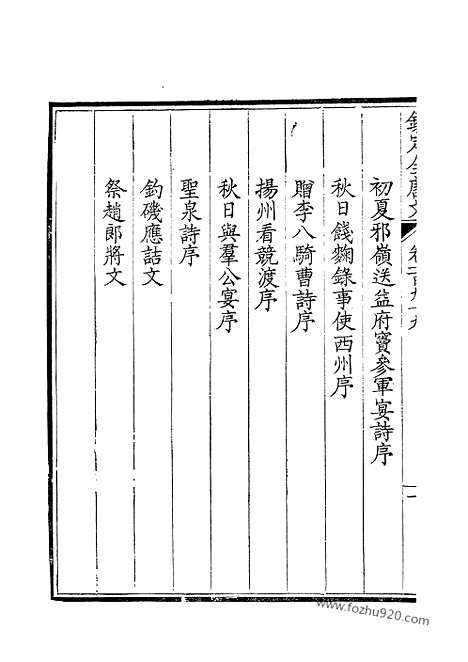 欽定全唐文
卷一百九十九
一
初夏邪嶺送益府竇參軍宴詩序
秋日餞麴錄事使西州序
贈李八騎曹詩序
揚州看競渡序
秋日與羣公宴序
聖泉詩序
釣磯應詰文
祭趙郎將文
www.fozhu920.com